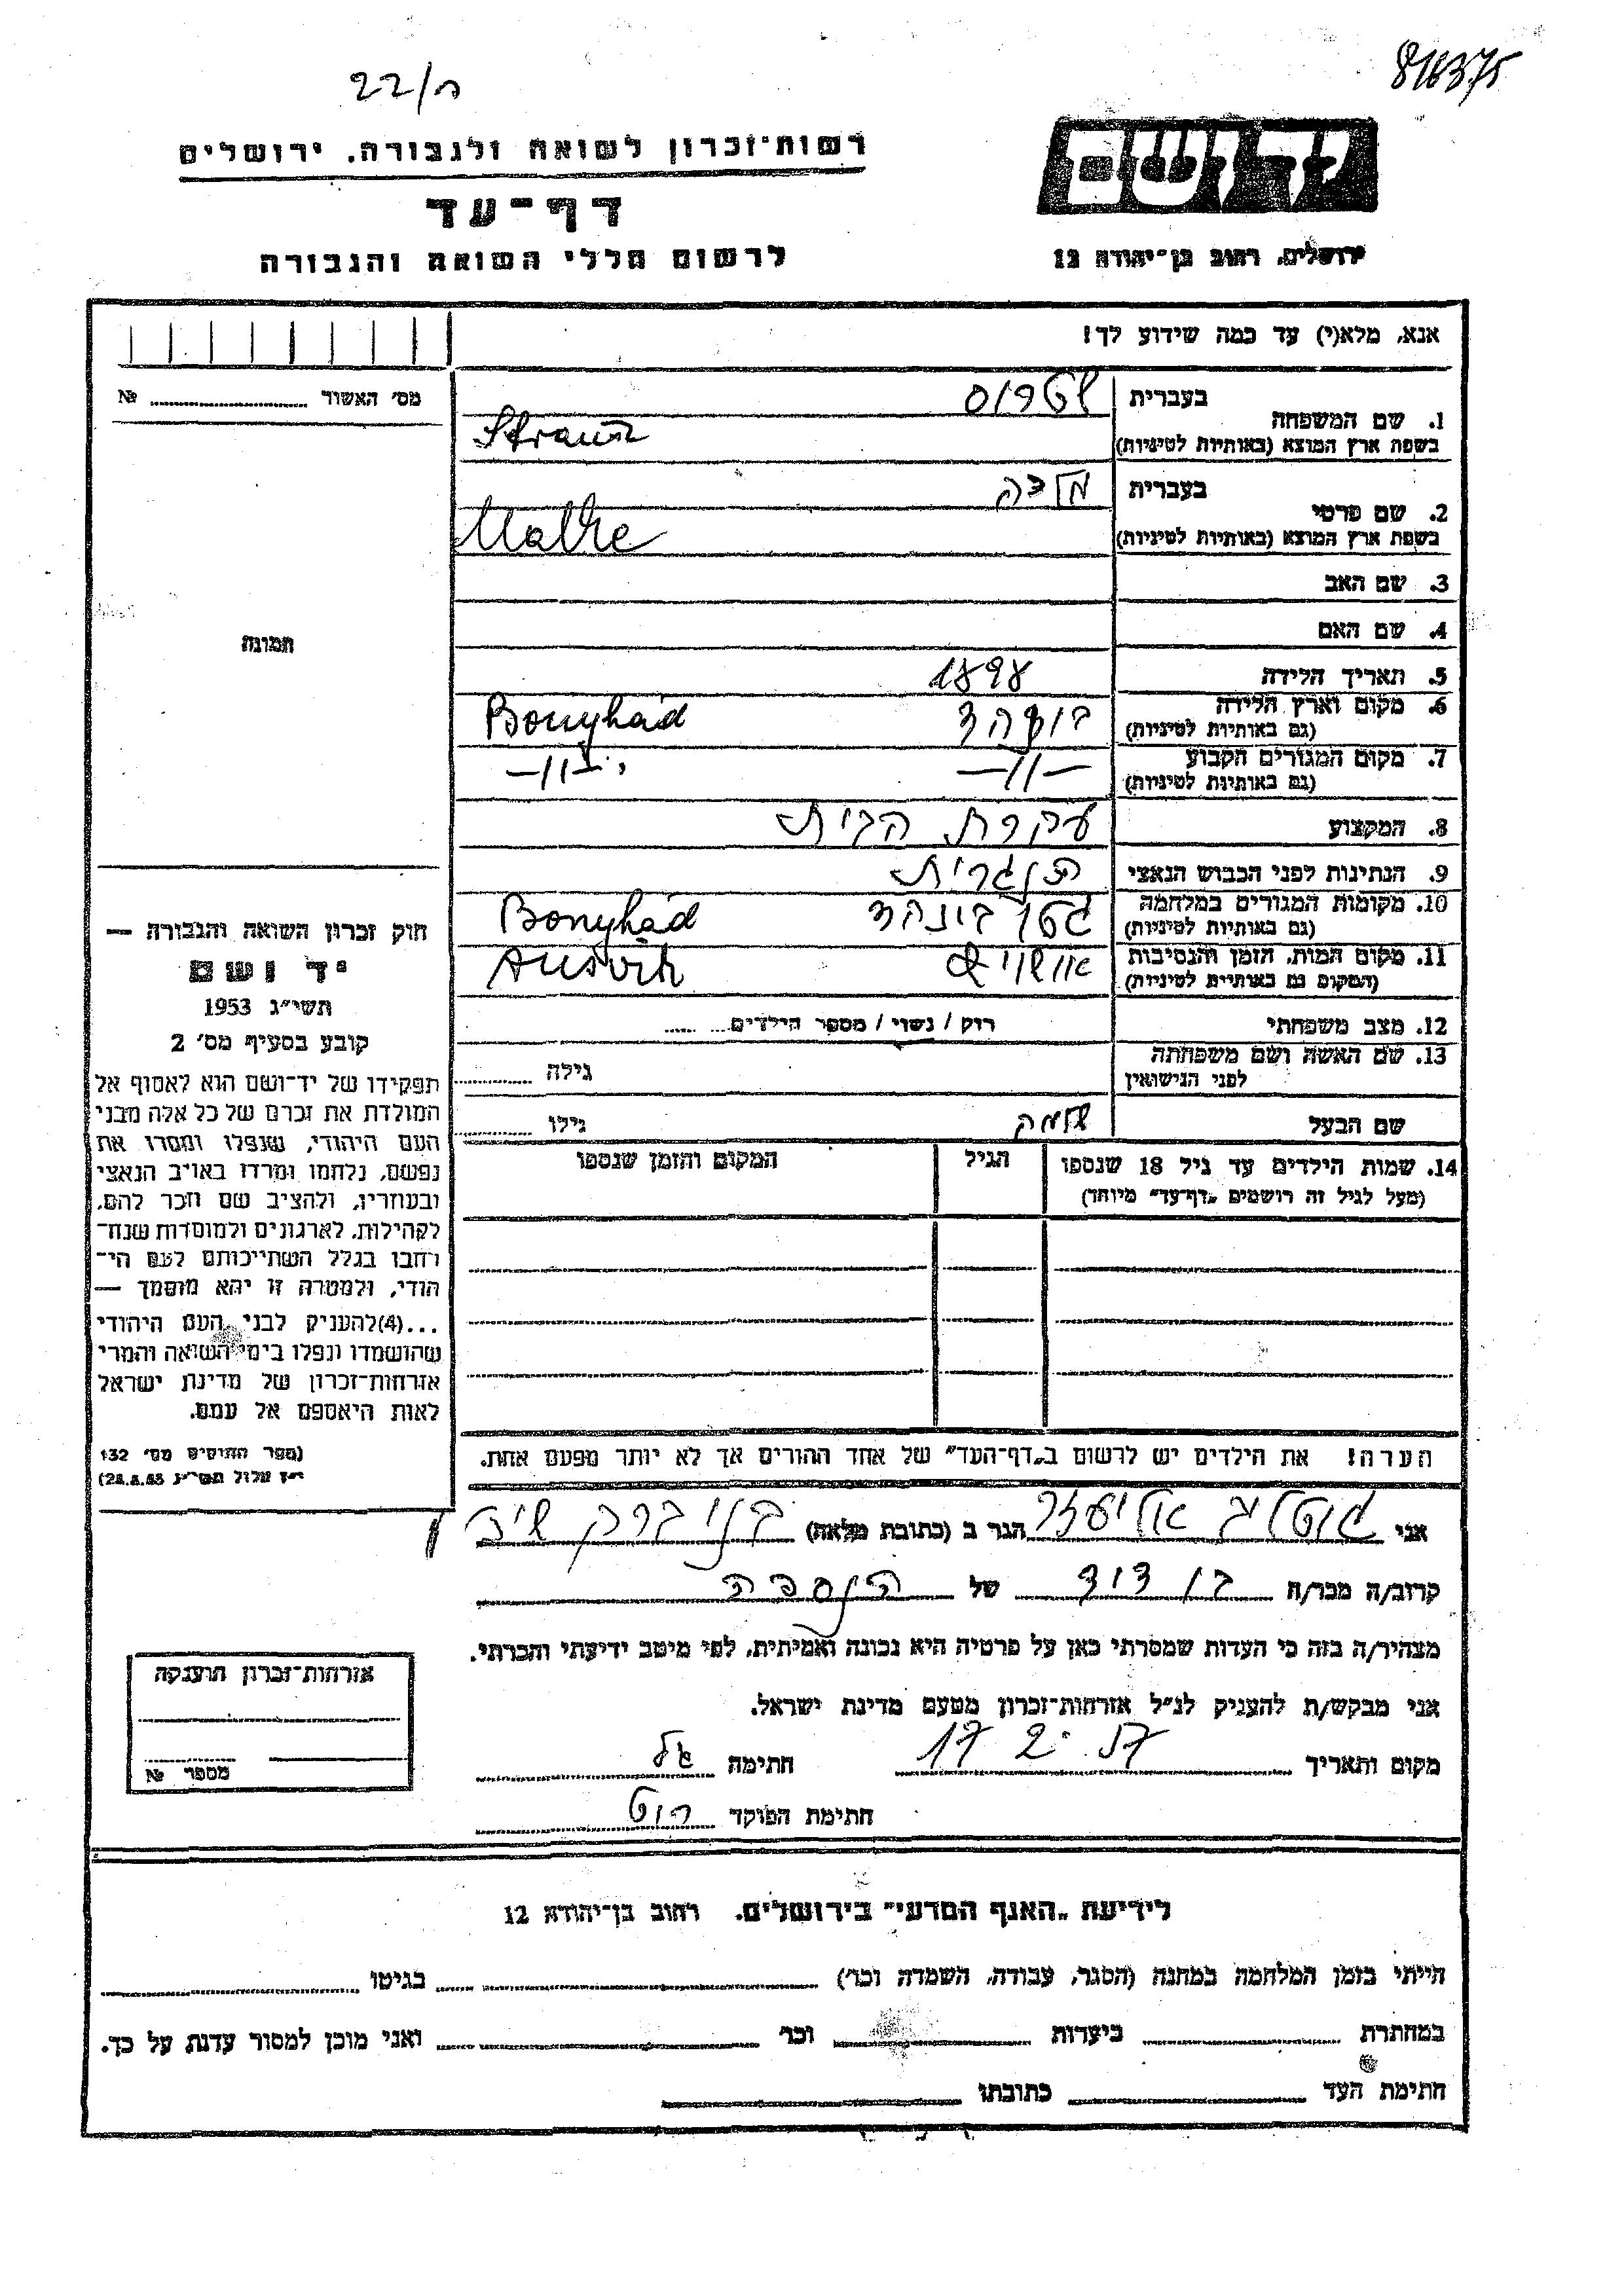 22/ח
816375
רשות-זכרון לשואה ולגבורה, ירושלים
דף-עד
לרשום חללי השואה והגבורה
ידושם
ירושלים, רחוב בן-יהודה 12
אנא, מלא(י) עד כמה שידוע לך!
מס' האשור № 
1. שם המשפחה
בעברית שטרוס
בשפת ארץ המוצא (באותיות לטיניות)
2. שם פרטי
בעברית מלכה
בשפת ארץ המוצא (באותיות לטיניות) Malke
3. שם האב
4. שם האם
5. תאריך הלידה 1898
6. מקום וארץ הלידה
(גם באותיות לטיניות) Bonyhád
7. מקום המגורים הקבוע
(גם באותיות לטיניות) —״— —״—
8. המקצוע עקרת הבית
9. הנתינות לפני הכבוש הנאצי הונגרית
10. מקומות המגורים במלחמה
(גם באותיות לטיניות) גטו בונהד Bonyhád
11. מקום המות, הזמן והנסיבות
(המקום גם באותיות לטיניות) אושויץ
12. מצב משפחתי רוק / נשוי / מספר הילדים
13. שם האשה ושם משפחתה
לפני הנישואין גילה
שם הבעל שלמה גילו
14. שמות הילדים עד גיל 18 שנספו
(מעל לגיל זה רושמים „דף-עד" מיוחד)
הגיל
המקום והזמן שנספו
הערה! את הילדים יש לרשום ב„דף-העד" של אחד ההורים אך לא יותר מפעם אחת.
תמונה
חוק זכרון השואה והגבורה —
יד ושם
תשי״ג 1953
קובע בסעיף מס' 2
תפקידו של יד-ושם הוא לאסוף אל
המולדת את זכרם של כל אלה מבני
העם היהודי, שנפלו ומסרו את
נפשם, נלחמו ומרדו באויב הנאצי
ובעוזריו, ולהציב שם וזכר להם,
לקהילות, לארגונים ולמוסדות שנח-
רחבו בגלל השתייכותם לעם הי-
הודי, ולמטרה זו יהא מוסמך —
...(4)להעניק לבני העם היהודי
שהושמדו ונפלו בימי השואה והמרי
אזרחות-זכרון של מדינת ישראל
לאות היאספם אל עמם.
(ספר החוקים מס' 132
אני גוטליב אליעזר הגר ב (כתובת מלאה) בני ברק
קרוב/ה מכר/ה בן דוד של הנספה
מצהיר/ה בזה כי העדות שמסרתי כאן על פרטיה היא נכונה ואמיתית, לפי מיטב ידיעתי והכרתי.
אני מבקש/ת להעניק לנ״ל אזרחות-זכרון מטעם מדינת ישראל.
מקום ותאריך 17 2 57 חתימה
חתימת הפוקד
אזרחות-זכרון הוענקה
מספר №
לידיעת „האגף המדעי" בירושלים, רחוב בן-יהודה 12
הייתי בזמן המלחמה במחנה (הסגר, עבודה, השמדה וכו') בגיטו
במחתרת ביערות וכו' ואני מוכן למסור עדות על כך.
חתימת העד כתובתו